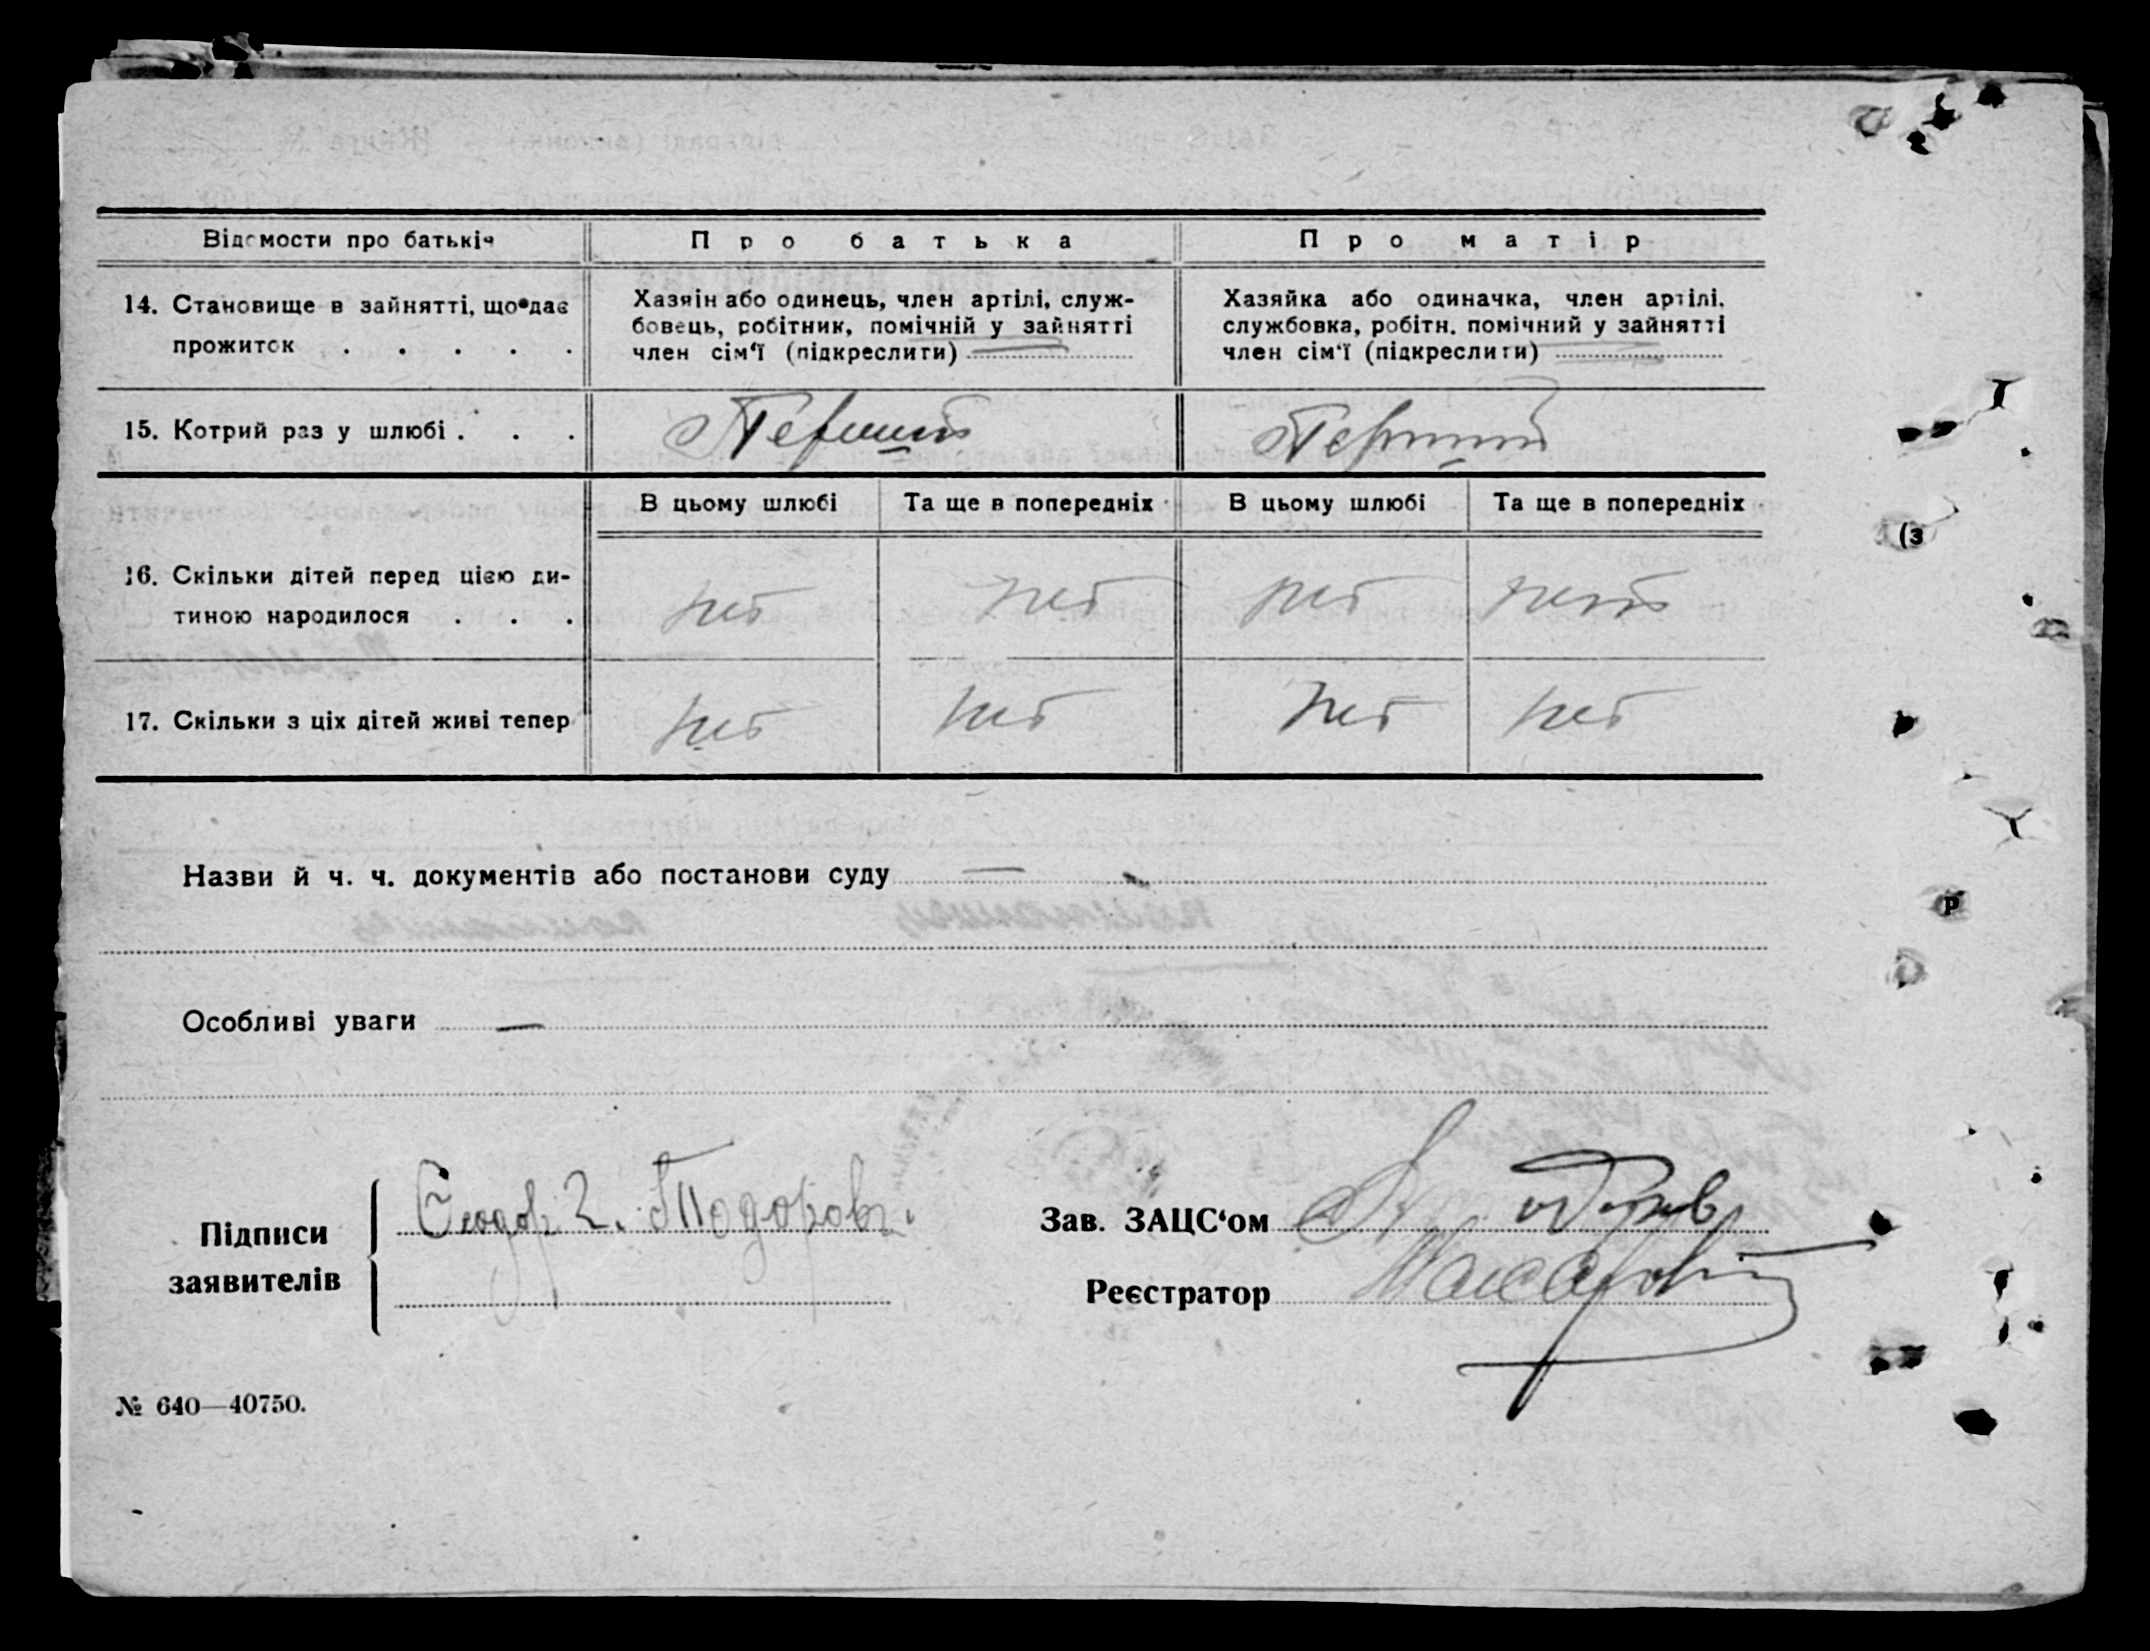 Відомости про батьків
Про батька
Про матір
14. Становище в зайнятті, що дає
прожиток . . . . .
Хазяїн або одинець, член артілі, служ-
бовець, робітник, помічній у зайнятті
член сім'ї (підкреслити)
Хазяйка або одиначка, член артілі,
службовка, робітн. помічний у зайнятті
член сім'ї (підкреслити)
15. Котрий раз у шлюбі . . .
Перший
Перший
В цьому шлюбі
Та ще в попередніх
В цьому шлюбі
Та ще в попередніх
16. Скільки дітей перед цією ди-
тиною народилося . . .
нет
нет
нет
нет
17. Скільки з ціх дітей живі тепер
нет
нет
нет
нет
Назви й ч. ч. документів або постанови суду —
Особливі уваги —
Підписи
заявителів
Зав. ЗАЦС'ом
Реєстратор
№ 640—40750.